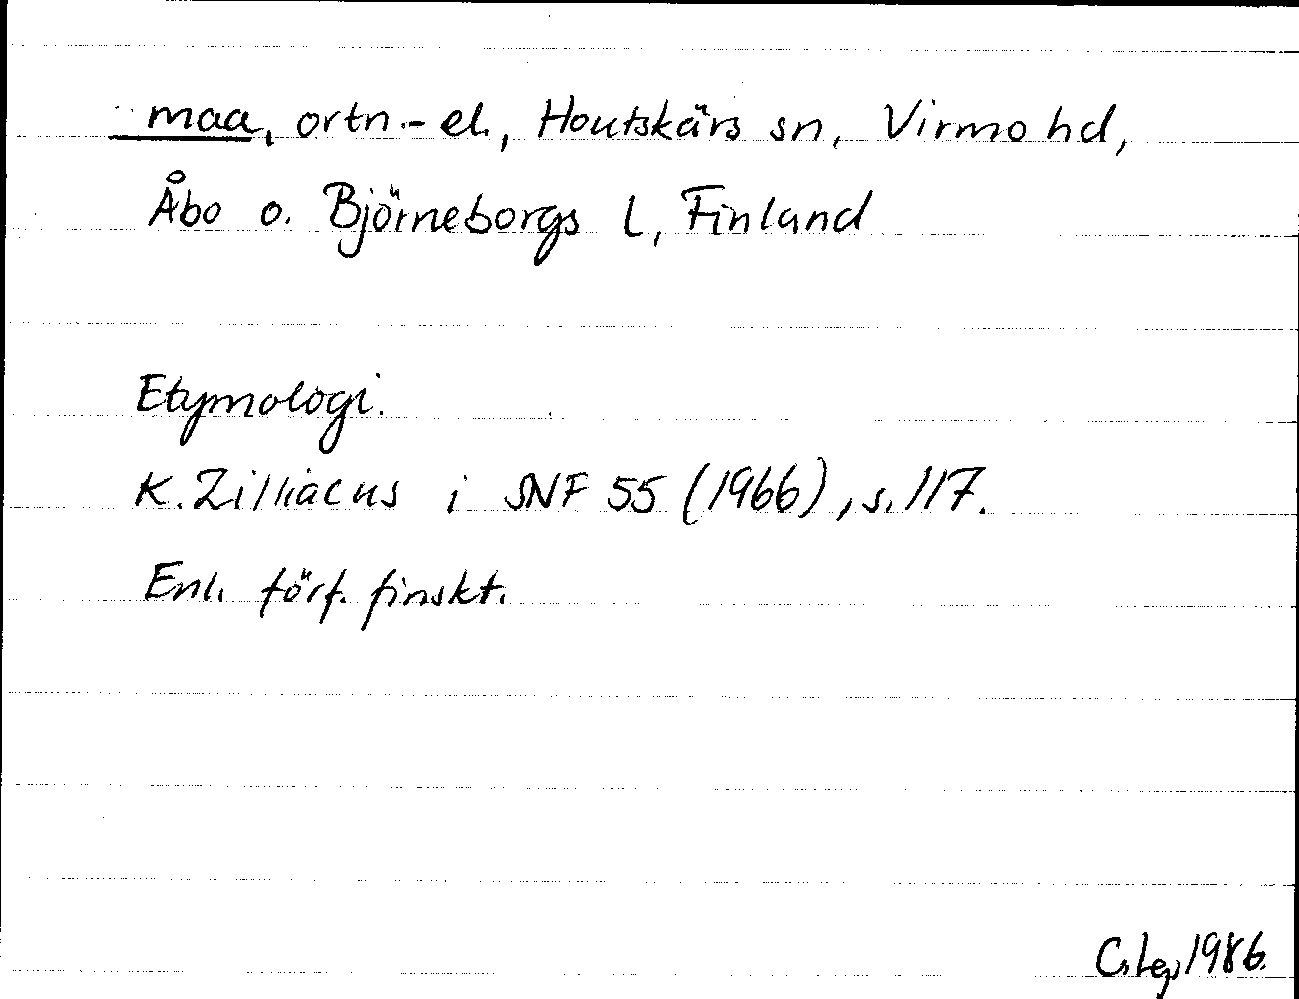 maa, ortn.-el., Houtskärs sn, Virmo hd,
Åbo o. Björneborgs l, Finland
Etymologi.
K. Zilliacus i SNF 55 (1966), s. 117.
Enl. förf. finskt.
1986.